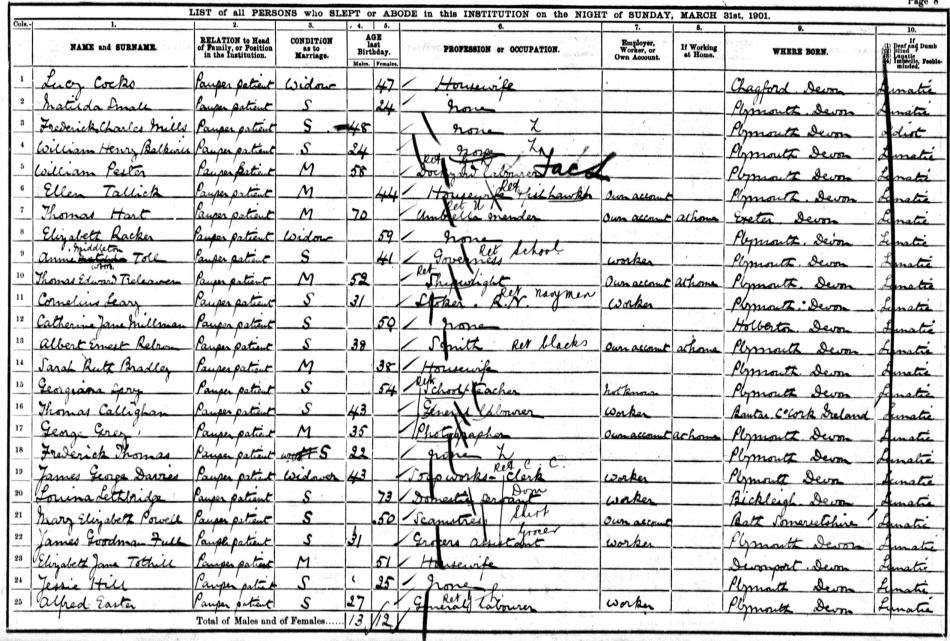 Page 8
LIST of all PERSONS who SLEPT or ABODE in this INSTITUTION on the NIGHT of SUNDAY, MARCH 31st, 1901.
Cols.— 1. 2. 3. 4. 5. 6. 7. 8. 9. 10.
NAME and SURNAME. RELATION to Head of Family, or Position in the Institution. CONDITION as to Marriage. AGE last Birthday. Males. Females. PROFESSION or OCCUPATION. Employer, Worker, or Own Account. If Working at Home. WHERE BORN. If (1) Deaf and Dumb (2) Blind (3) Lunatic (4) Imbecile, Feeble-minded.
1 Lucy Cocks Pauper patient Widow 47 Housewife Chagford Devon Lunatic
2 Matilda Small Pauper patient S 24 none Plymouth Devon Lunatic
3 Frederick Charles Mills Pauper patient S 48 none Plymouth Devon Idiot
4 William Henry Pauper patient S 24 none Plymouth Devon Lunatic
5 William Pester Pauper patient M 58 Ret Dockyard labourer Plymouth Devon Lunatic
6 Ellen Tallick Pauper patient M 44 Housewife Fishhawker Own account Plymouth Devon Lunatic
7 Thomas Hart Pauper patient M 70 Umbrella mender Own account at home Exeter Devon Lunatic
8 Elizabeth Racker Pauper patient Widow 59 None Plymouth Devon Lunatic
9 Annie Middleton Toll Pauper patient S 41 Governess Ret School worker Plymouth Devon Lunatic
10 Thomas Edward Treleaven Pauper patient M 52 Ret Shipwright Own account at home Plymouth Devon Lunatic
11 Cornelius Leary Pauper patient S 31 Stoker R.N. Ret navy men Worker Plymouth Devon Lunatic
12 Catherine Jane Millman Pauper patient S 50 none Holberton Devon Lunatic
13 Albert Ernest Pauper patient S 38 Smith Ret blacks Own account at home Plymouth Devon Lunatic
14 Sarah Ruth Bradley Pauper patient M 38 Housewife Plymouth Devon Lunatic
15 Georgiana Pauper patient S 54 Ret School teacher Not known Plymouth Devon Lunatic
16 Thomas Callighan Pauper patient S 43 General labourer Worker Co Cork Ireland Lunatic
17 George Grey Pauper patient M 35 Photographer Own account at home Plymouth Devon Lunatic
18 Frederick Thomas Pauper patient S 22 none Plymouth Devon Lunatic
19 James George Davies Pauper patient Widower 43 Soap works - Clerk Ret C. C. worker Plymouth Devon Lunatic
20 Louina Lethbridge Pauper patient S 73 Domestic servant Dom worker Bickleigh Devon Lunatic
21 Mary Elizabeth Powell Pauper patient S 50 Seamstress Shirt Own account Bath Somersetshire Lunatic
22 James Goodman Full Pauper patient S 31 Grocers assistant Grocer worker Plymouth Devon Lunatic
23 Elizabeth Jane Tothill Pauper patient M 51 Housewife Devonport Devon Lunatic
24 Jessie Hill Pauper patient S 25 None Plymouth Devon Lunatic
25 Alfred Easter Pauper patient S 27 General labourer Ret worker Plymouth Devon Lunatic
Total of Males and of Females...... 13 12